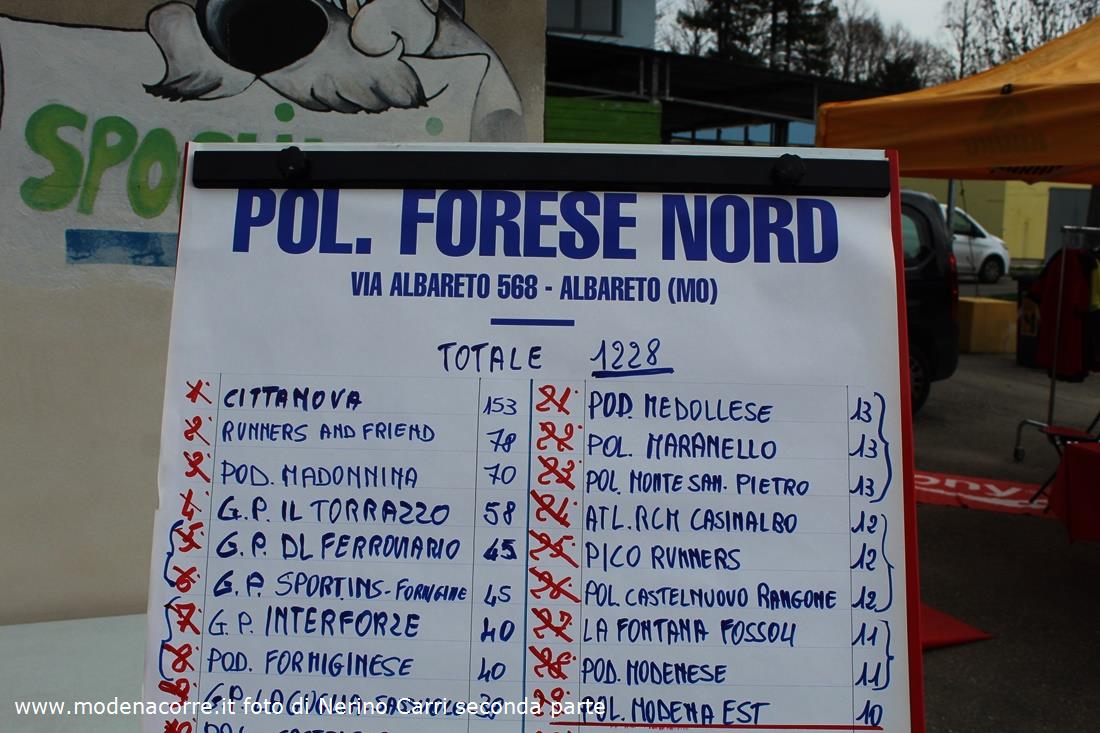 POL. FORESE NORD
VIA ALBARETO 568 - ALBARETO (MO)
TOTALE 1228
1. CITTANOVA 153
2. RUNNERS AND FRIEND 78
3. POD. MADONNINA 70
4. G.P. IL TORRAZZO 58
5. G.P. DL FERROVIARIO 45
6. G.P. SPORTINS-FORMIGINE 45
7. G.P. INTERFORZE 40
8. POD. FORMIGINESE 40
G.P. LA GUGLIA-SASSUOLO
21. POD. MEDOLLESE 13
22. POL. MARANELLO 13
23. POL. MONTE SAN. PIETRO 13
24. ATL. RCM CASINALBO 12
25. PICO RUNNERS 12
26. POL. CASTELNUOVO RANGONE 12
27. LA FONTANA FOSSOLI 11
28. POD. MODENESE 11
29. POL. MODENA EST 10
www.modenacorre.it foto di Nerino Carri seconda parte